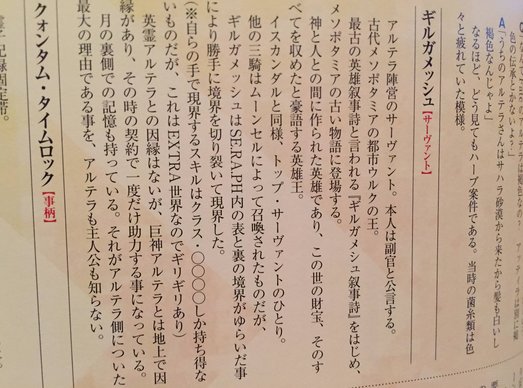 A
「うちのアルテラさんはサハラ砂漠から来たから髪も白いし
褐色なんじゃよ」
なるほど、どう見てもハーブ案件である。当時の菌糸類は色
々と疲れていた模様。
ギルガメッシュ【サーヴァント】
アルテラ陣営のサーヴァント。本人は副官と公言する。
古代メソポタミアの都市ウルクの王。
最古の英雄叙事詩と言われる『ギルガメシュ叙事詩』をはじめ、
メソポタミアの古い物語に登場する。
神と人との間に作られた英雄であり、この世の財宝、そのす
べてを収めたと豪語する英雄王。
イスカンダルと同様、トップ・サーヴァントのひとり。
他の三騎はムーンセルによって召喚されたものだが、
ギルガメッシュはSE.RA.PH内の表と裏の境界がゆらいだ事
により勝手に境界を切り裂いて現界した。
（※自らの手で現界するスキルはクラス・〇〇〇〇しか持ち得な
いものだが、これはEXTRA世界なのでギリギリあり）
英霊アルテラとの因縁はないが、巨神アルテラとは地上で因
縁があり、その時の契約で一度だけ助力する事になっている。
月の裏側での記憶も持っている。それがアルテラ側についた
最大の理由である事を、アルテラも主人公も知らない。
クォンタム・タイムロック【事柄】